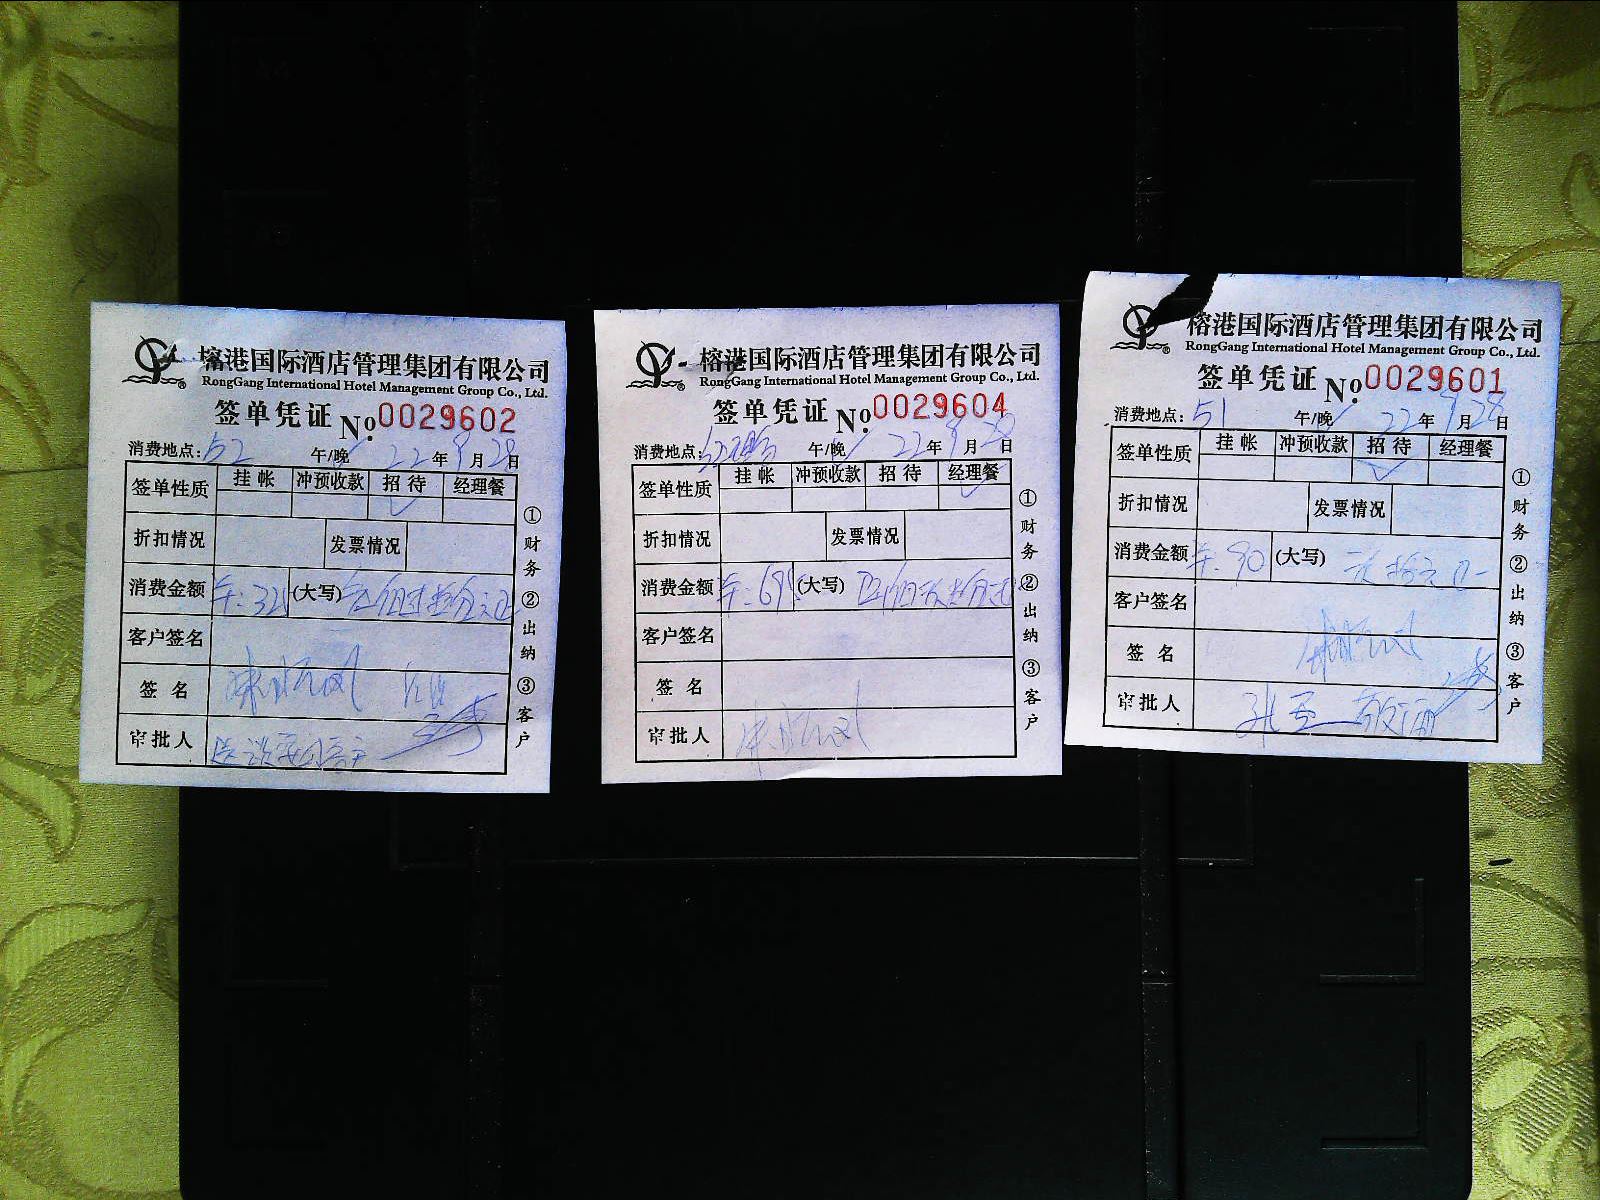 榕港国际酒店管理集团有限公司
RongGang International Hotel Management Group Co., Ltd.
签单凭证 No. 0029602
消费地点: 52 午/晚 22年9月28日
签单性质 挂帐 冲预收款 招待 经理餐
折扣情况 发票情况
消费金额 (大写)
客户签名
签名
审批人
①财务 ②出纳 ③客户
榕港国际酒店管理集团有限公司
RongGang International Hotel Management Group Co., Ltd.
签单凭证 No. 0029604
消费地点: 午/晚 22年9月28日
签单性质 挂帐 冲预收款 招待 经理餐
折扣情况 发票情况
消费金额 (大写)
客户签名
签名
审批人
①财务 ②出纳 ③客户
榕港国际酒店管理集团有限公司
RongGang International Hotel Management Group Co., Ltd.
签单凭证 No. 0029601
消费地点: 51 午/晚 22年9月28日
签单性质 挂帐 冲预收款 招待 经理餐
折扣情况 发票情况
消费金额 90 (大写)
客户签名
签名
审批人
①财务 ②出纳 ③客户